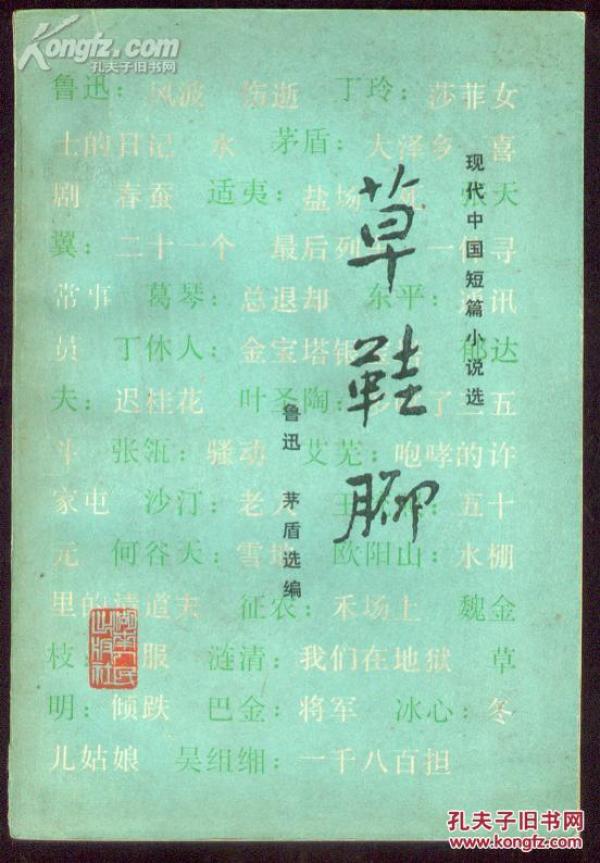 Kongfz.com
孔夫子旧书网
鲁迅：风波 伤逝 丁玲：莎菲女
士的日记 水 茅盾：大泽乡 喜
剧 春蚕 适夷：盐场 死 张天
翼：二十一个 最后列车 一件寻
常事 葛琴：总退却 东平：通讯
员 丁休人：金宝塔银宝塔 郁达
夫：迟桂花 叶圣陶：多收了三五
斗 张瓴：骚动 艾芜：咆哮的许
家屯 沙汀：老人 五十
元 何谷天：雪地 欧阳山：水棚
里的清道夫 征农：禾场上 魏金
枝：服 涟清：我们在地狱 草
明：倾跌 巴金：将军 冰心：冬
儿姑娘 吴组缃：一千八百担
现代中国短篇小说选
草鞋脚
鲁迅 茅盾选编
湖南人民
出版社
孔夫子旧书网
www.kongfz.com